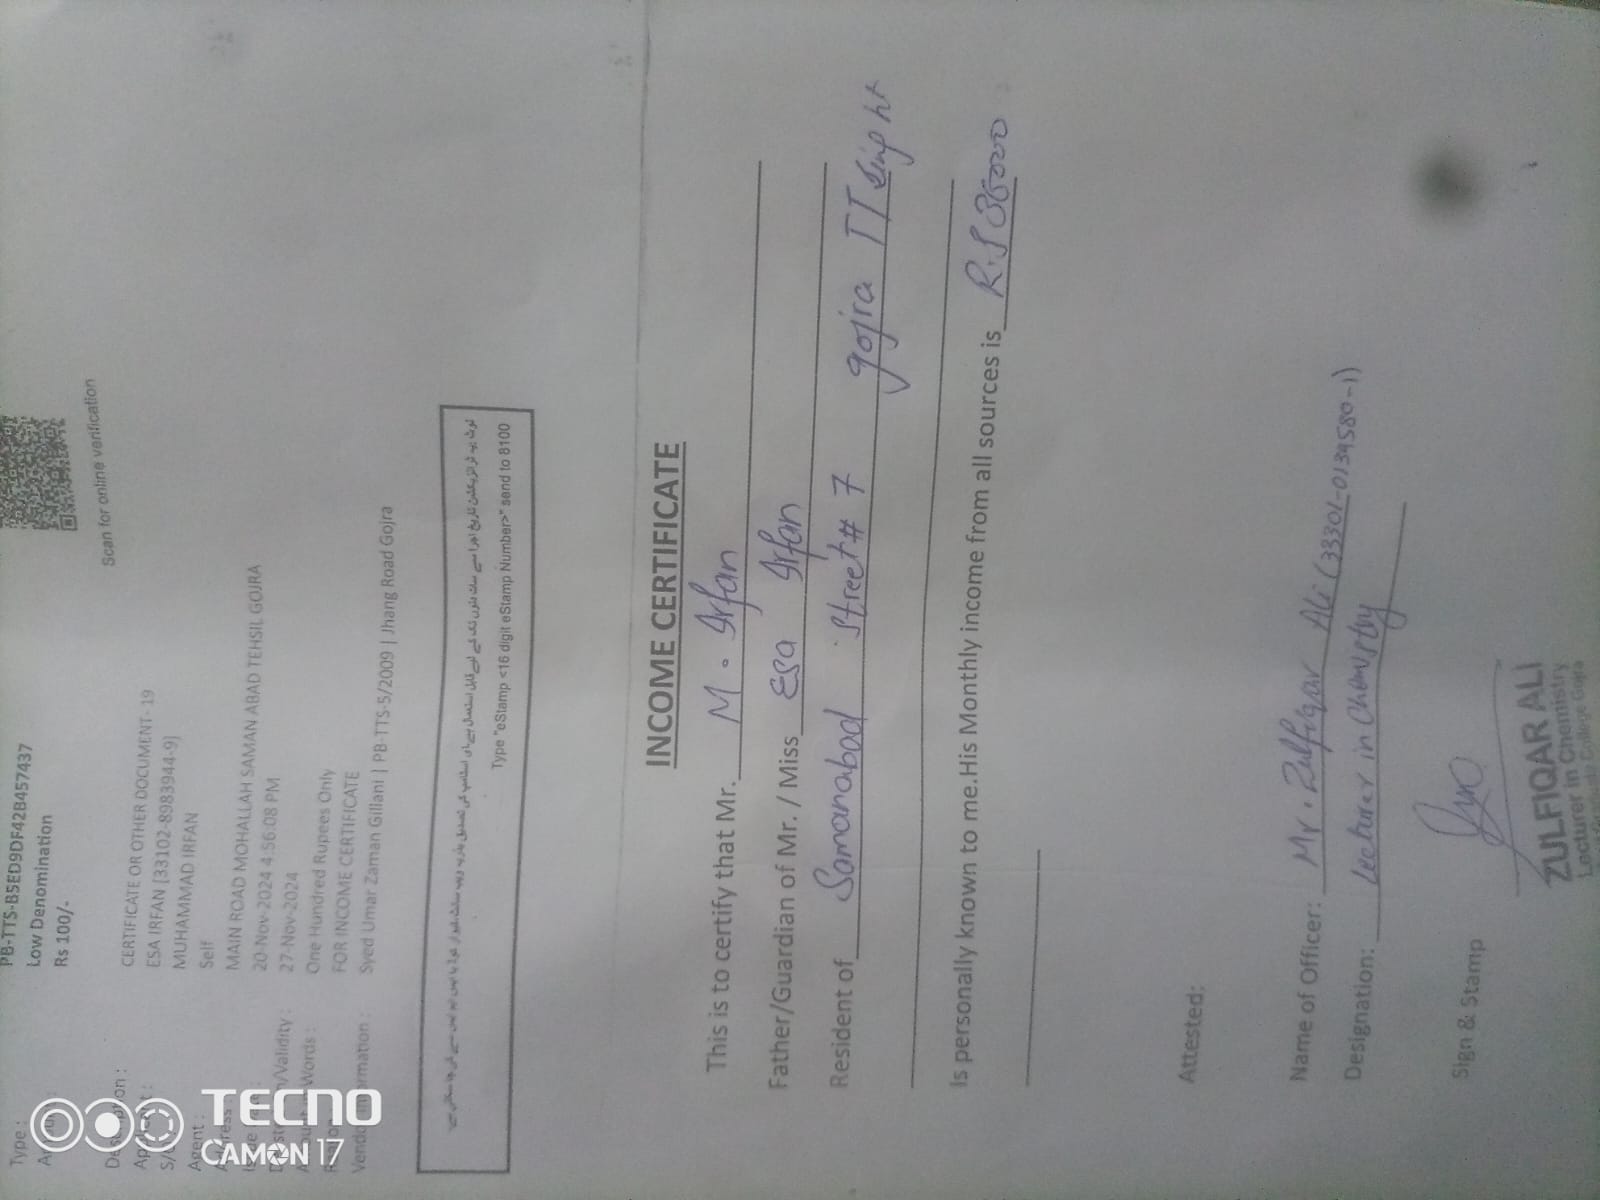 PB-TTS-B5ED9DF42B457437
Type : Low Denomination
Rs 100/-
Scan for online verification
CERTIFICATE OR OTHER DOCUMENT - 19
ESA IRFAN [33102-8983944-9]
MUHAMMAD IRFAN
Agent : Self
MAIN ROAD MOHALLAH SAMAN ABAD TEHSIL GOJRA
20-Nov-2024 4:56:08 PM
27-Nov-2024
One Hundred Rupees Only
FOR INCOME CERTIFICATE
Syed Umar Zaman Gillani | PB-TTS-5/2009 | Jhang Road Gojra
Type "eStamp <16 digit eStamp Number>" send to 8100
INCOME CERTIFICATE
This is to certify that Mr. M. Irfan
Father/Guardian of Mr. / Miss Esa Irfan
Resident of Samanabad Street# 7 gojra TT Singht
Is personally known to me.His Monthly income from all sources is
Attested:
Name of Officer: Mr. Zulfiqar Ali (33301-0134580-1)
Designation: Lecturer in Chemistry
Sign & Stamp
ZULFIQAR ALI
Lecturer in Chemistry
College Gojra
TECNO
CAMON 17